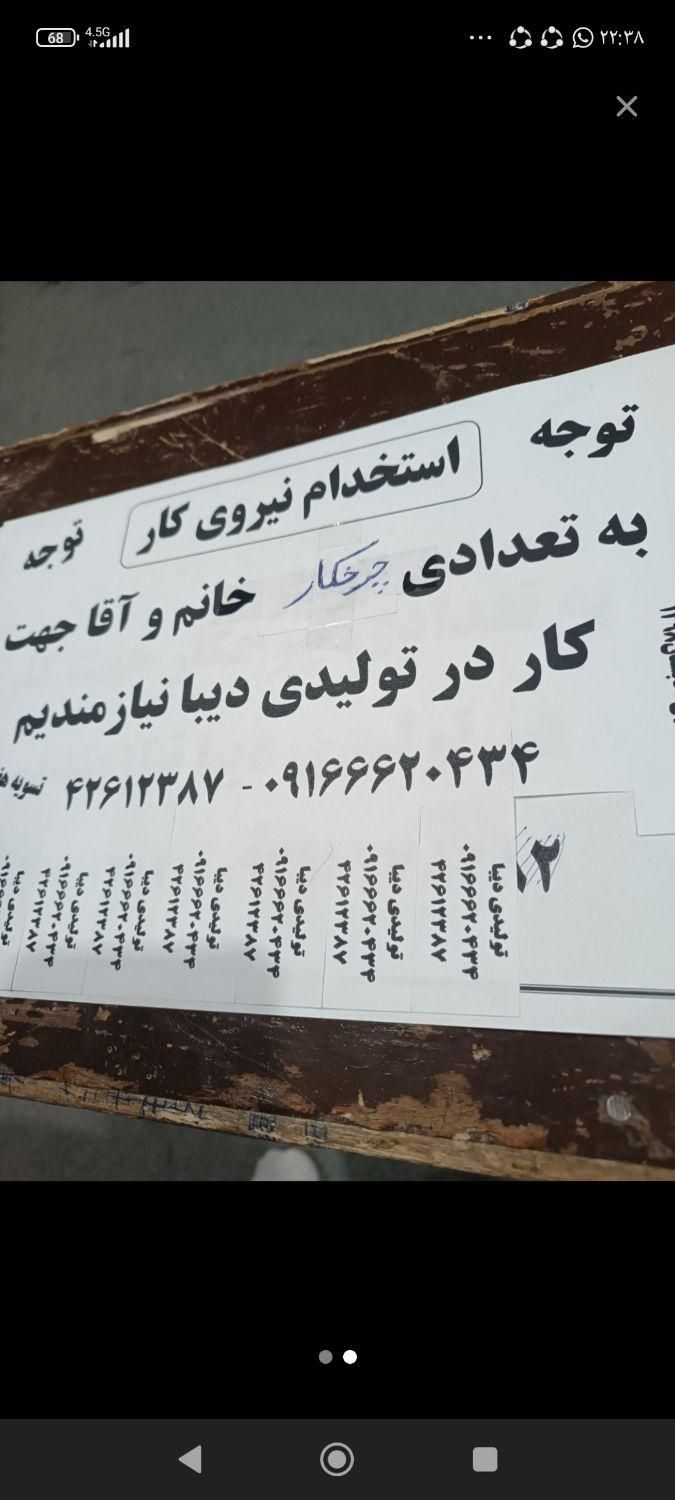 68
4.5G
۲۲:۳۸
توجه
استخدام نیروی کار
توجه
به تعدادی چرخکار خانم و آقا جهت
کار در تولیدی دیبا نیازمندیم
۰۹۱۶۶۶۲۰۴۳۴ - ۴۲۶۱۲۳۸۷ تسویه
۲
تولیدی دیبا
۰۹۱۶۶۶۲۰۴۳۴
۴۲۶۱۲۳۸۷
تولیدی دیبا
۰۹۱۶۶۶۲۰۴۳۴
۴۲۶۱۲۳۸۷
تولیدی دیبا
۰۹۱۶۶۶۲۰۴۳۴
۴۲۶۱۲۳۸۷
تولیدی دیبا
۰۹۱۶۶۶۲۰۴۳۴
۴۲۶۱۲۳۸۷
تولیدی دیبا
۰۹۱۶۶۶۲۰۴۳۴
۴۲۶۱۲۳۸۷
تولیدی دیبا
۰۹۱۶۶۶۲۰۴۳۴
۴۲۶۱۲۳۸۷
تولیدی دیبا